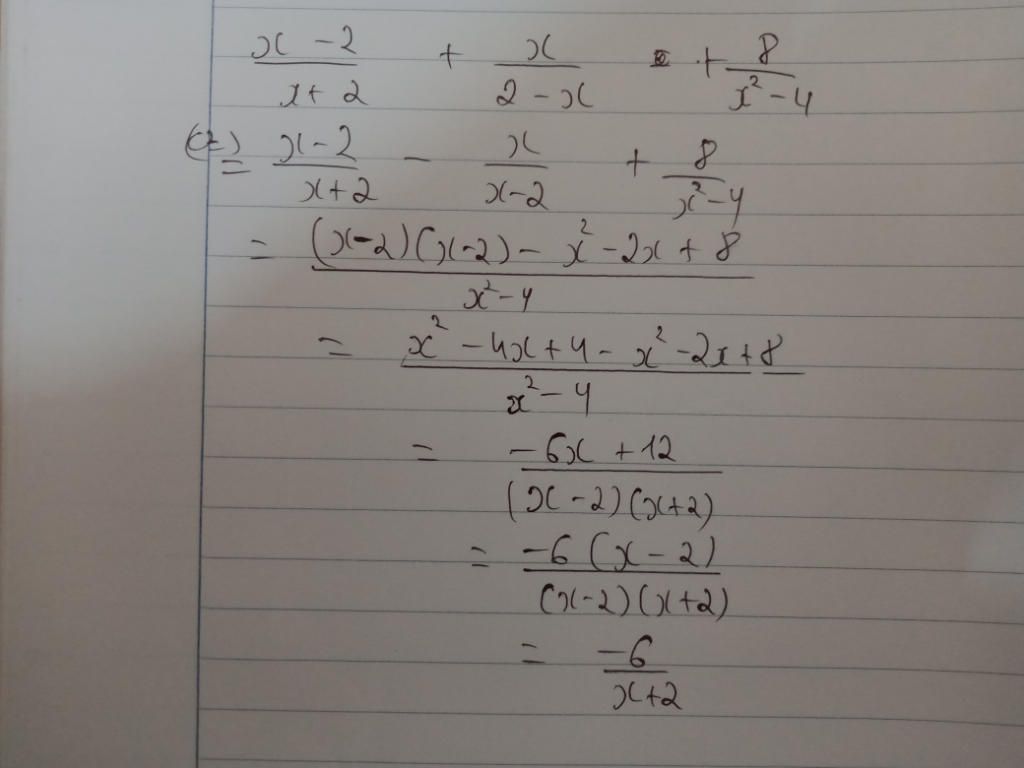 (x - 2)/(x + 2) + x/(2 - x) + 8/(x² - 4)
(2) = (x - 2)/(x + 2) - x/(x - 2) + 8/(x² - 4)
= ((x - 2)(x - 2) - x² - 2x + 8)/(x² - 4)
= (x² - 4x + 4 - x² - 2x + 8)/(x² - 4)
= (-6x + 12)/((x - 2)(x + 2))
= (-6(x - 2))/((x - 2)(x + 2))
= -6/(x + 2)